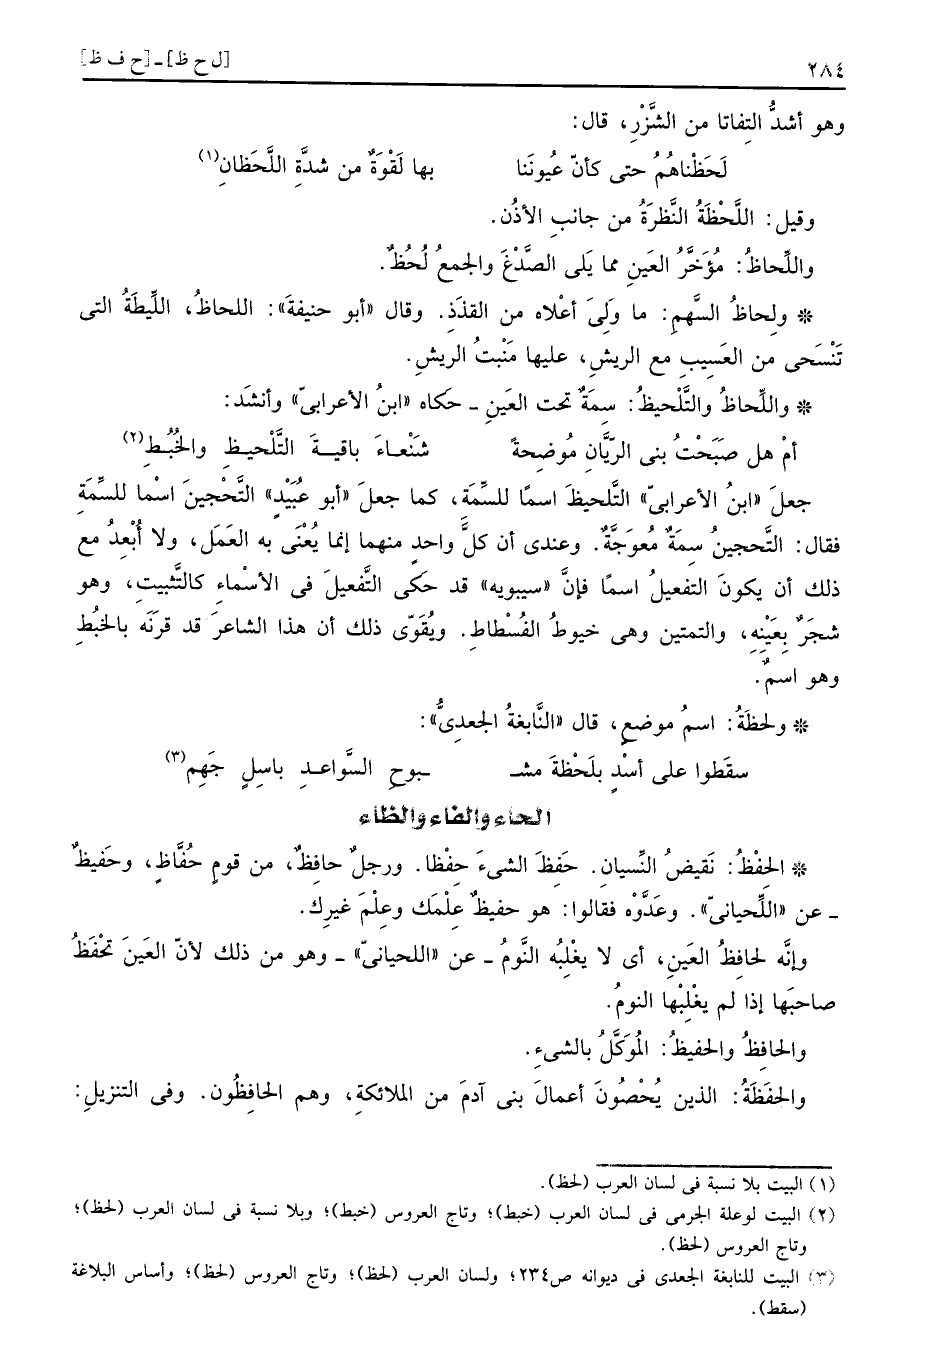 ٢٨٤ [ل ح ظ] ـ [ح ف ظ]
وهو أشدُّ التِفاتا من الشَّزْرِ، قال:
لَحَظْناهُمُ حتى كأنّ عُيونَنا بها لَقْوَةٌ من شدَّةِ اللَّحَظانِ(١)
وقيل: اللَّحْظَةُ النَّظرَةُ من جانبِ الأذُن.
واللِّحاظُ: مُؤَخَّرُ العَينِ مما يَلى الصدَّغَ والجمعُ لُحُظٌ.
* ولِحاظُ السَّهمِ: ما وَلِىَ أعْلاه من القذَذِ. وقال «أبو حنيفةَ»: اللحاظُ، اللِّيطَةُ التى
تَنْسَحى من العَسِيبِ مع الريشِ، عليها مَنْبتُ الريش.
* واللِّحاظُ والتَّلْحيظُ: سِمَةٌ تحت العَينِ ـ حكاه «ابنُ الأعرابىّ» وأنشدَ:
أمْ هل صَبَحْتُ بنى الرّيَّانِ مُوضِحةً شَنْعاءَ باقيةَ التَّلْحيظِ والخُبُطِ(٢)
جعلَ «ابنُ الأعرابىّ» التَّلحيظَ اسمًا للسِّمَةِ، كما جعلَ «أبو عُبَيْدٍ» التَّحْجينَ اسْما للسِّمَةِ
فقال: التَّحجينُ سِمَةٌ مُعوَجَّةٌ. وعندى أن كلَّ واحدٍ منهما إنما يُعْنَى به العَمَل، ولا أُبْعِدُ مع
ذلك أن يكونَ التفعيلُ اسمًا فإنَّ «سيبويه» قد حكَى التَّفعيلَ فى الأسْماءِ كالتَّثبيتِ، وهو
شجَرٌ بِعَيْنِهِ، والتمتين وهى خيوطُ الفُسْطاطِ. ويُقَوّى ذلك أن هذا الشاعرَ قد قرنَه بالخُبُطِ
وهو اسمٌ.
* ولحظَةُ: اسمُ موضعٍ، قال «النَّابغةُ الجعدِىُّ»:
سقَطوا على أسْدٍ بلَحْظةَ مشـ ـبوحِ السَّواعدِ باسِلٍ جَهِم(٣)
الحاء والفاء والظاء
* الحفْظُ: نَقيضُ النِّسيانِ. حَفِظَ الشىءَ حِفْظا. ورجلٌ حافِظٌ، من قومٍ حُفَّاظٍ، وحَفيظٌ
ـ عن «اللِّحيانىّ». وعَدَّوْه فقالوا: هو حفيظٌ علْمَك وعلْمَ غيرِك.
وإنَّه لحافِظُ العَينِ، أى لا يغْلِبُه النَّومُ ـ عن «اللحيانىّ» ـ وهو من ذلك لأنّ العَينَ تحْفَظُ
صاحبَها إذا لم يغْلِبْها النومُ.
والحافِظُ والحفيظُ: المُوَكَّلُ بالشىءِ.
والحفَظَةُ: الذين يُحْصُونَ أعمالَ بنى آدمَ من الملائكةِ، وهم الحافِظُون. وفى التنزيلِ:
(١) البيت بلا نسبة فى لسان العرب (لحظ).
(٢) البيت لوعلة الجرمى فى لسان العرب (خبط)؛ وتاج العروس (خبط)؛ وبلا نسبة فى لسان العرب (لحظ)؛
وتاج العروس (لحظ).
(٣) البيت للنابغة الجعدى فى ديوانه ص٢٣٤؛ ولسان العرب (لحظ)؛ وتاج العروس (لحظ)؛ وأساس البلاغة
(سقط).